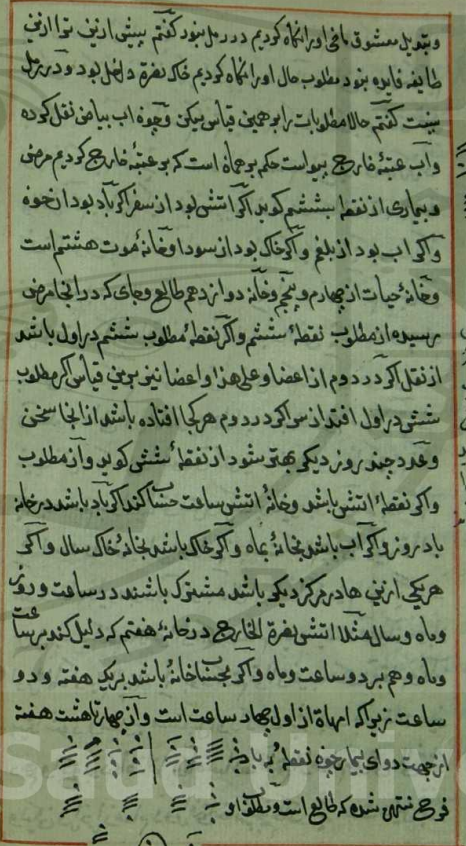 وتبدیل معشوق مافی اورا نگاه کردیم در رمل بنود کفتم پیش ازنی
طایفه فایده بنود مطلوب حال اورا نگاه کردیم خاک نصرة داخل بود و در رمل
نیست کفتم حالا مطلوبات را بر همین قیاس میکن وچونه اب بیاض نقل کرده
واب عتبه خارج پیواست حکم بر هماه است که بر عتبه خارج کردیم مرض
وبیماری از نقطه ششم کوید اکر اتشی بود از سفر اکر باد بود از خوه
واکر اب بود از بلغم واکر خاک بود از سودا وخانه موت هشتم است
وخانه حیات از چهارم وپنجم وخانه دوازدهم طالع وجای که در انجا مرض
رسیده از مطلوب نقطه ششم واکر نقطه مطلوب ششم در اول باشد
از نقل اکر در دوم از اعضا وعلی هذا واعضا نیز برین قیاس اکر مطلوب
ششی در اول افتد از سر اکر در دوم هر کجا افتاده باشد از انجا سخن
وعدد چند روز دیکر بهتر شود از نقطه ششی کوید واز مطلوب
واکر نقطه اتشی باشد وخانه اتشی ساعت حساب کند اکر باد باشد در خانه
باد روز واکر آب باشد بخانه ماه واکر خاک باشد بخانه خاک سال واکر
هر یکی ازینها در مرکز دیکر باشد مشترک باشند در ساعت وروز
وماه وسال مثلا اتشی نصرة الخارج در خانه هفتم که دلیل کند بر ساعت
وماه وهم بر دو ساعت وماه واکر بحساب خانه باشد بریک هفته ودو
ساعت زیرا که امهاة از اول چهار ساعت است واز چهار تا هشت هفته
از جهت دوای بیمار چونه نقطه باد
فرح منتهی شده که طالع است ومطلوب او